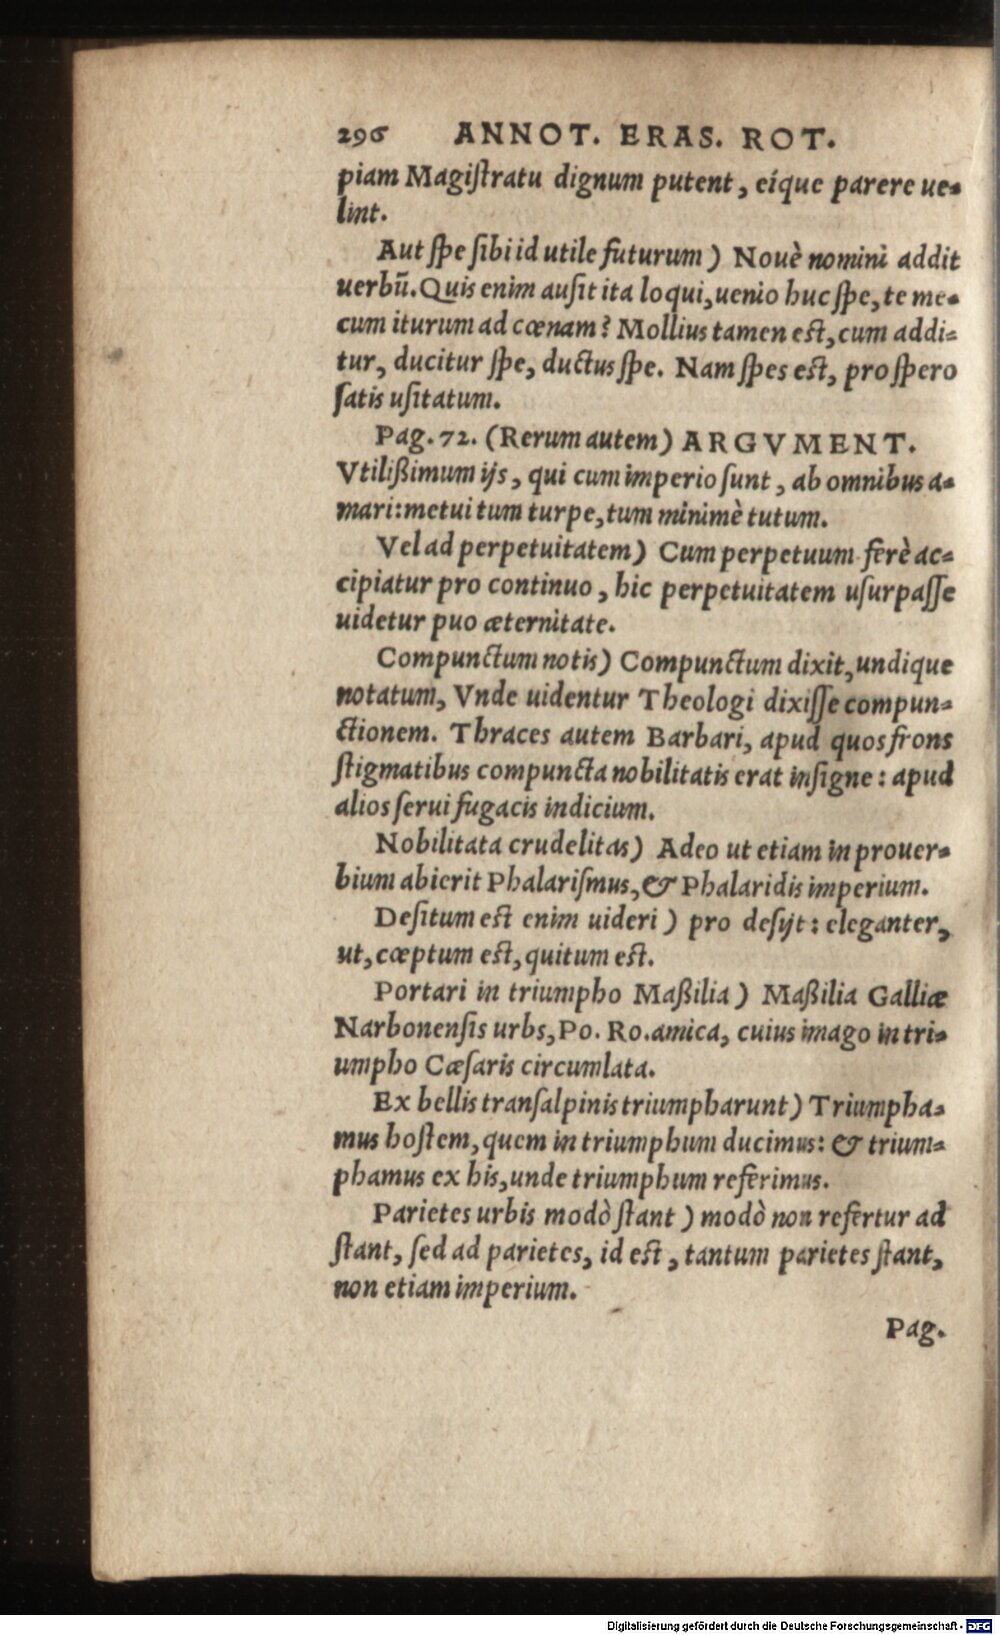 296 ANNOT. ERAS. ROT.
piam Magiſtratu dignum putent, eíque parere ue-
lint.
Aut ſpe ſibi id utile futurum) Nouè nomini addit
uerbū. Quis enim auſit ita loqui, uenio huc ſpe, te me-
cum iturum ad cœnam? Mollius tamen eſt, cum addi-
tur, ducitur ſpe, ductus ſpe. Nam ſpes eſt, pro ſpero
ſatis uſitatum.
Pag. 72. (Rerum autem) ARGVMENT.
Vtilißimum ijs, qui cum imperio ſunt, ab omnibus a-
mari: metui tum turpe, tum minimè tutum.
Vel ad perpetuitatem) Cum perpetuum ferè ac-
cipiatur pro continuo, hic perpetuitatem uſurpaſſe
uidetur puo æternitate.
Compunctum notis) Compunctum dixit, undique
notatum, Vnde uidentur Theologi dixiſſe compun-
ctionem. Thraces autem Barbari, apud quos frons
ſtigmatibus compuncta nobilitatis erat inſigne: apud
alios ſerui fugacis indicium.
Nobilitata crudelitas) Adeo ut etiam in prouer-
bium abierit Phalariſmus, & Phalaridis imperium.
Deſitum eſt enim uideri) pro deſijt: eleganter,
ut, cœptum eſt, quitum eſt.
Portari in triumpho Maßilia) Maßilia Galliæ
Narbonenſis urbs, Po. Ro. amica, cuius imago in tri-
umpho Cæſaris circumlata.
Ex bellis tranſalpinis triumpharunt) Triumpha-
mus hoſtem, quem in triumphum ducimus: & trium-
phamus ex his, unde triumphum referimus.
Parietes urbis modò ſtant) modò non refertur ad
ſtant, ſed ad parietes, id eſt, tantum parietes ſtant,
non etiam imperium.
Pag.
Digitalisierung gefördert durch die Deutsche Forschungsgemeinschaft - DFG